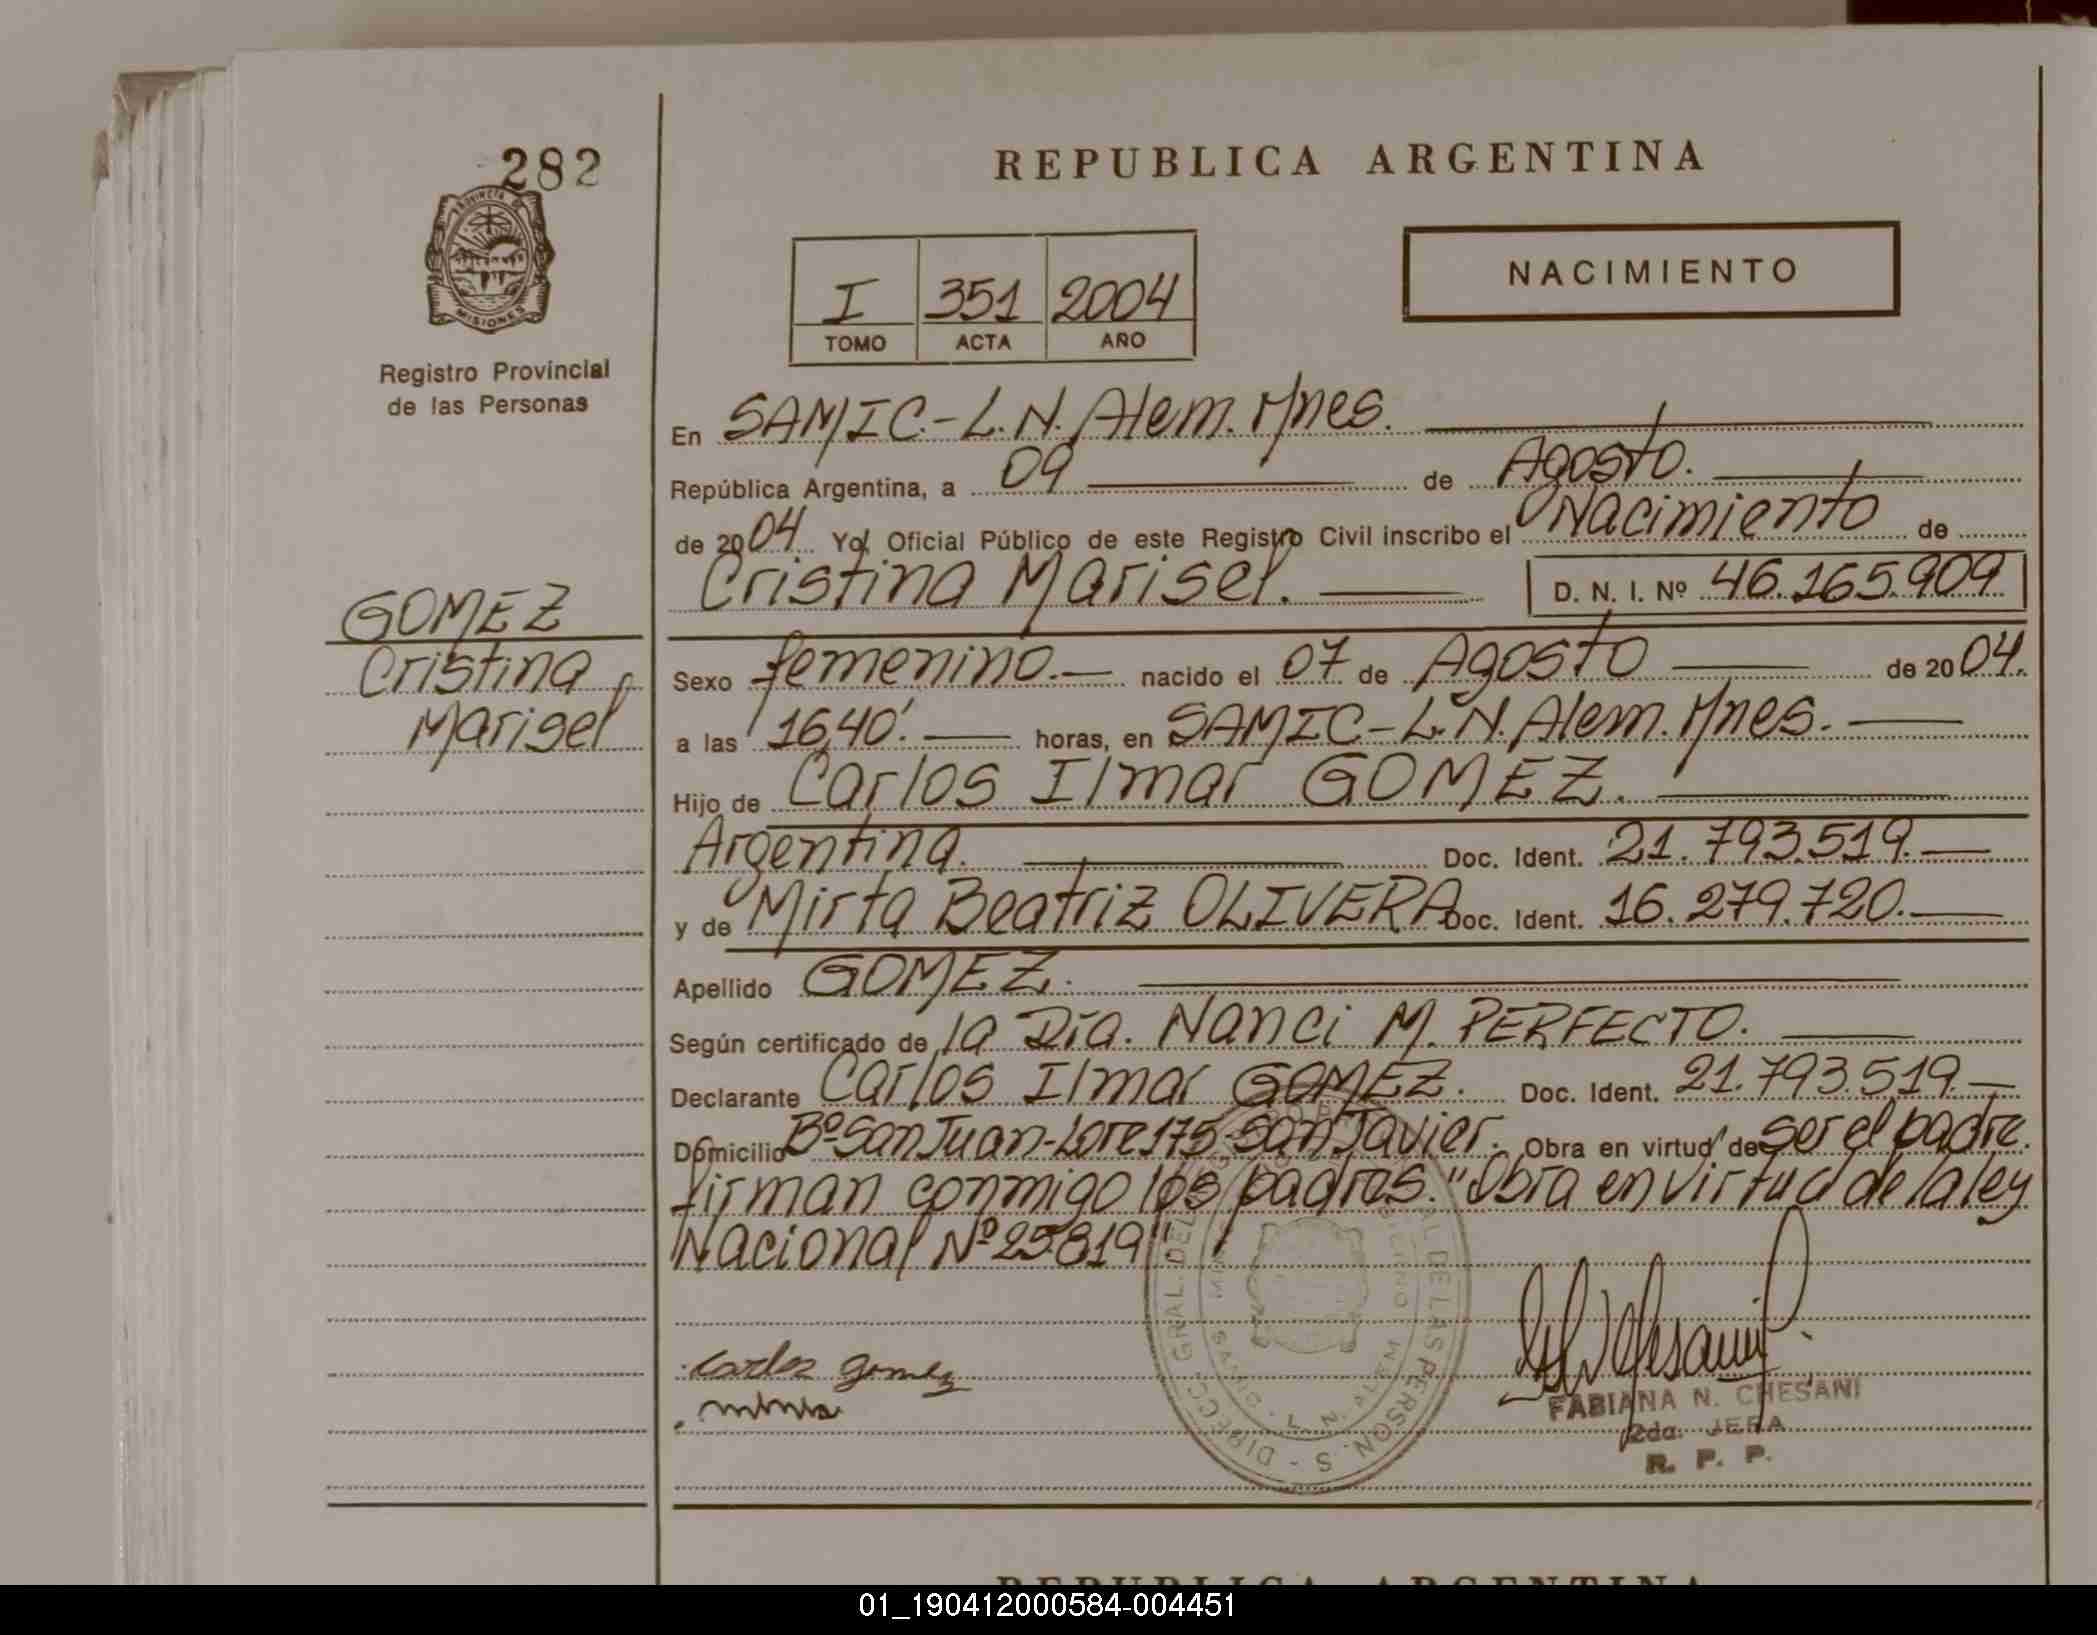 282
PROVINCIA DE
MISIONES
Registro Provincial
de las Personas
REPUBLICA ARGENTINA
I 351 2004
TOMO ACTA AÑO
NACIMIENTO
En SAMIC.-L.N.Alem.Mnes.
República Argentina, a 09 de Agosto.
de 2004 Yo, Oficial Público de este Registro Civil inscribo el Nacimiento de
Cristina Marisel. D. N. I. Nº 46.165.909
GOMEZ
Cristina
Marisel
Sexo femenino.- nacido el 07 de Agosto de 2004.
a las 16,40'. horas, en SAMIC-L.N.Alem.Mnes.
Hijo de Carlos Ilmar GOMEZ.
Argentina. Doc. Ident. 21.793.519.-
y de Mirta Beatriz OLIVERA Doc. Ident. 16.279.720.-
Apellido GOMEZ.
Según certificado de la Dra. Nanci M. PERFECTO.
Declarante Carlos Ilmar GOMEZ. Doc. Ident. 21.793.519.-
Domicilio Bº San Juan-Lote 175-San Javier. Obra en virtud de ser el padre.
firman conmigo los padres."Obra en virtud de la ley
Nacional Nº 25819"
carlos gomez
FABIANA N. CHESANI
2da. JEFA
R. P. P.
REPUBLICA ARGENTINA
01_190412000584-004451